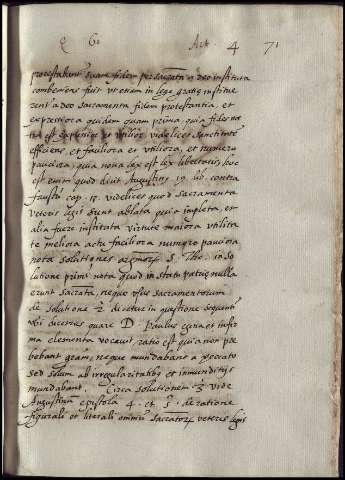 Q 61 Art 4 71
protestabunt suam fidem per sacrata a deo instituta
conveniens fuit ut etiam in lege gratię institue
rent a deo sacramenta fidem protestantia, et
expressiora quidem quam prima quia fides no
tia est et utilior, videlicet sanctitate
efficiens, et faciliora et utiliora, et numero
pauciora, quia nova lex est lex libertatis, hoc
est enim quod dicit Augustinus 19 lib. contra
faustū cap. 13. videlicet quod sacramenta
veteris legis sunt ablata quia impleta, et
alia fuere instituta virtute maiora utilita
te meliora actu faciliora numero pauciora
nota solutiones argmoꝝ S. Tho. in so
lutione primi nota quod in statu patrię nulla
erunt sacrata, neque usus sacramentorum
de solutione 2 dicetur in questione sequenti
ubi dicetur quare D. Paulus egena et infir
ma elementa vocavit, ratio est quia non prę
bebant gram, neque mundabant a peccato
sed solum ab irregularitatibus et inmunditijs
mundabant. Circa solutionem 3 vide
Augustinū epistola 4. et 5. de ratione
figurali et literali omniū sacratoꝝ veteris legis